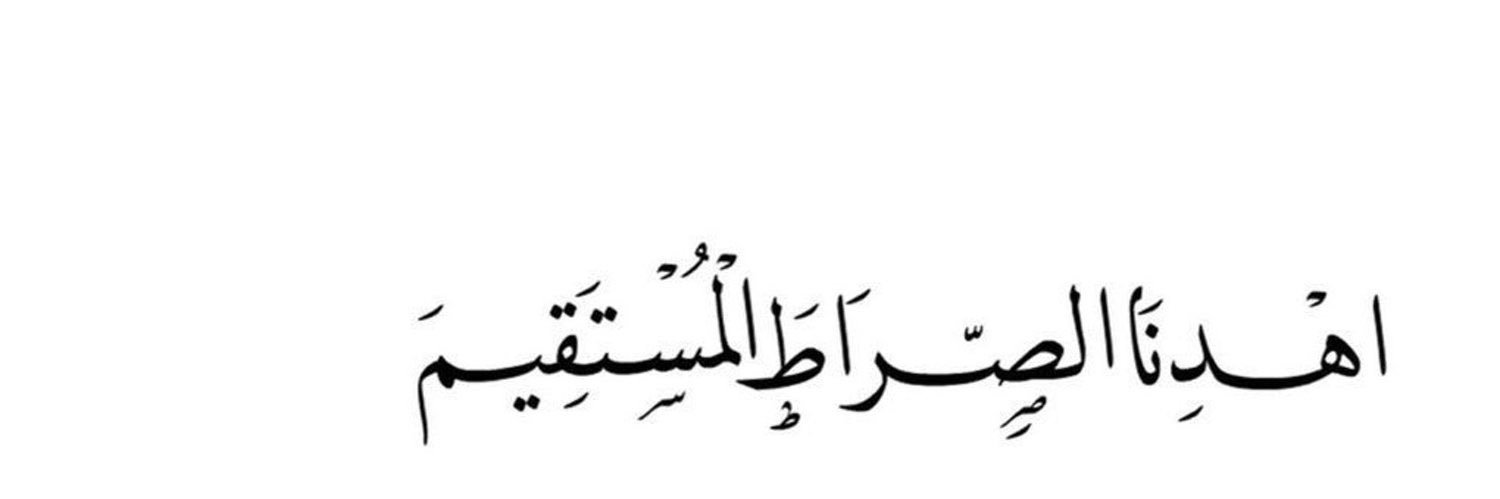 اهْدِنَا الصِّرَاطَ الْمُسْتَقِيمَ